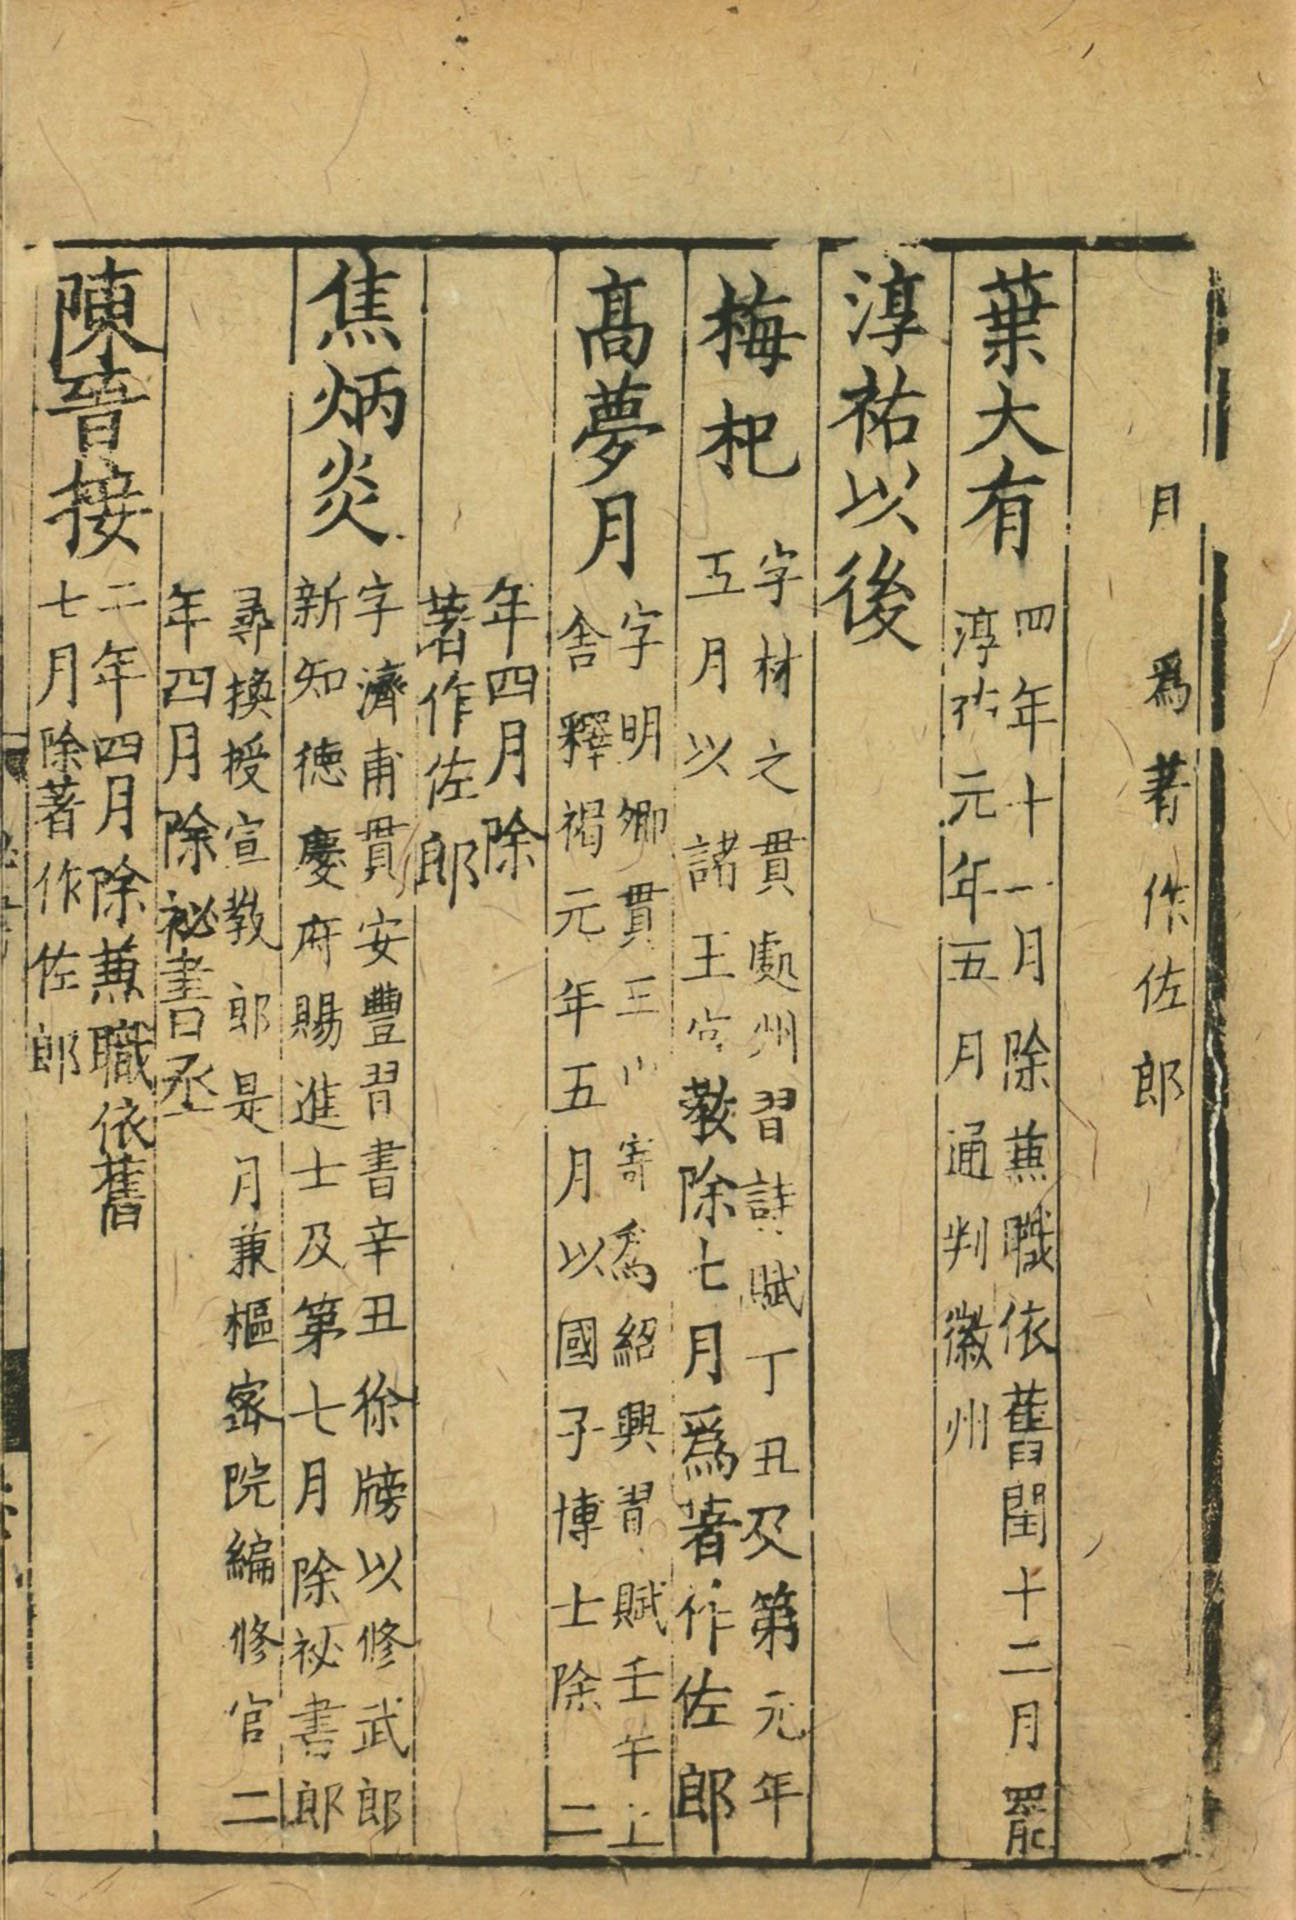 月　爲著作佐郎
葉大有
四年十一月除兼職依舊閏十二月罷
淳祐元年五月通判徽州
淳祐以後
梅杞
字材之貫處州習詩賦丁丑及第元年
五月以諸王宮教除七月爲著作佐郎
高夢月
字明卿貫三山寄爲紹興習賦壬午上
舍釋褐元年五月以國子博士除二
年四月除
著作佐郎
焦炳炎
字濟甫貫安豐習書辛丑徐牓以修武郎
新知德慶府賜進士及第七月除祕書郎
尋換授宣敎郎是月兼樞密院編修官二
年四月除祕書丞
陳晉接
二年四月除兼職依舊
七月除著作佐郎